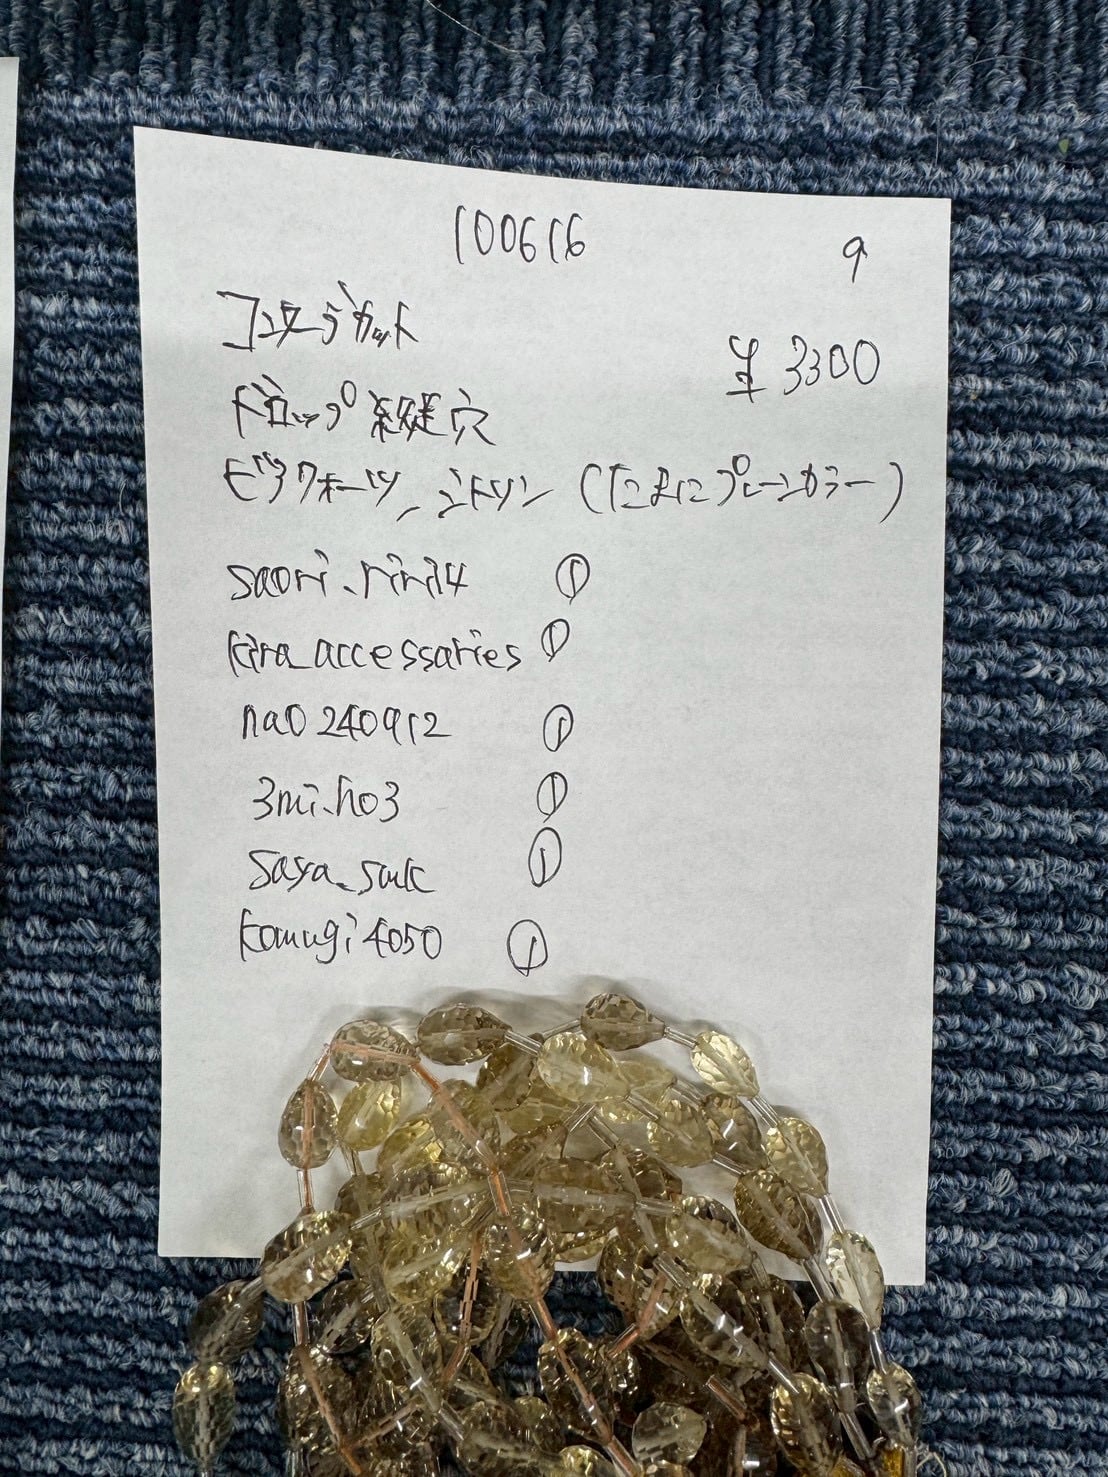 100616
9
コンケーブカット
¥3300
ドロップ縦穴
ビアクォーツ、シトリン (たまにプレーンカラー)
saori.riri14 ①
kira_accessaries ①
nao240912 ①
3mi.ho3 ①
①
komugi4050 ①